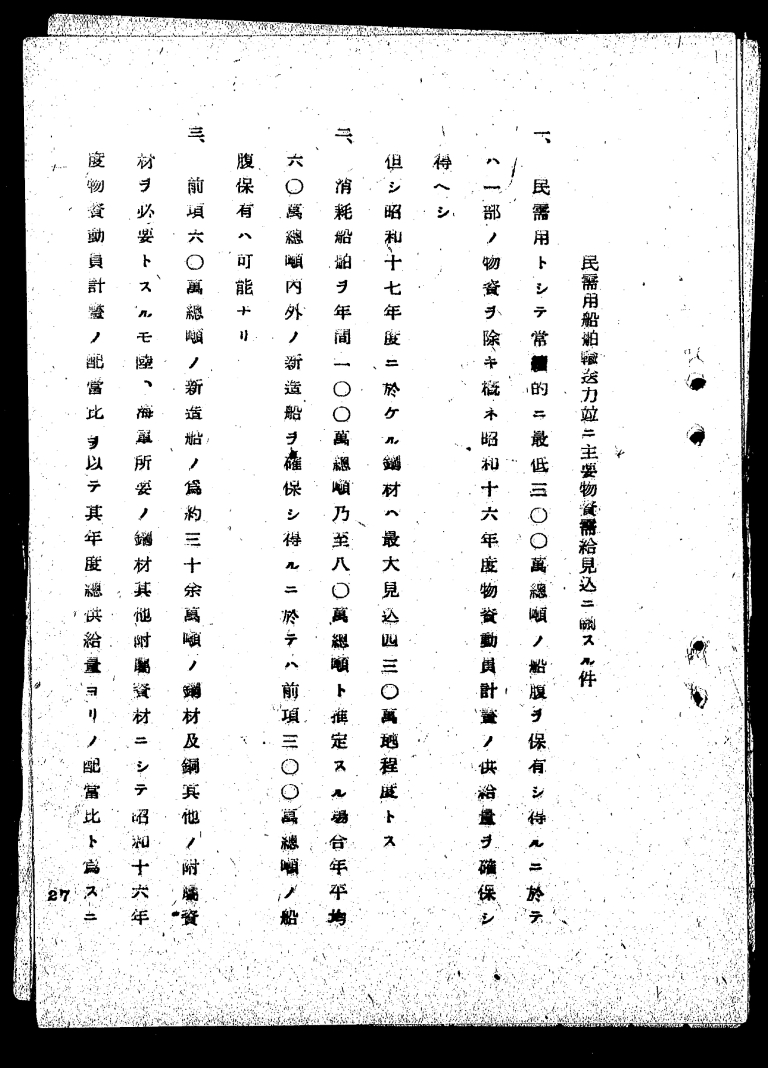 民需用船舶輸送力竝ニ主要物資需給見込ニ關スル件
一、民需用トシテ常續的ニ最低三〇〇萬總噸ノ船腹ヲ保有シ得ルニ於テ
ハ一部ノ物資ヲ除キ概ネ昭和十六年度物資動員計畫ノ供給量ヲ確保シ
得ヘシ
但シ昭和十七年度ニ於ケル鋼材ハ最大見込四三〇萬瓲程度トス
二、消耗船舶ヲ年間一〇〇萬總噸乃至八〇萬總噸ト推定スル場合年平均
六〇萬總噸内外ノ新造船ヲ確保シ得ルニ於テハ前項三〇〇萬總噸ノ船
腹保有ハ可能ナリ
三、前項六〇萬總噸ノ新造船ノ爲約三十余萬噸ノ鋼材及銅其他ノ附屬資
材ヲ必要トスルモ陸、海軍所要ノ鋼材其他附屬資材ニシテ昭和十六年
度物資動員計畫ノ配當比ヲ以テ其年度總供給量ヨリノ配當比ト爲スニ
27